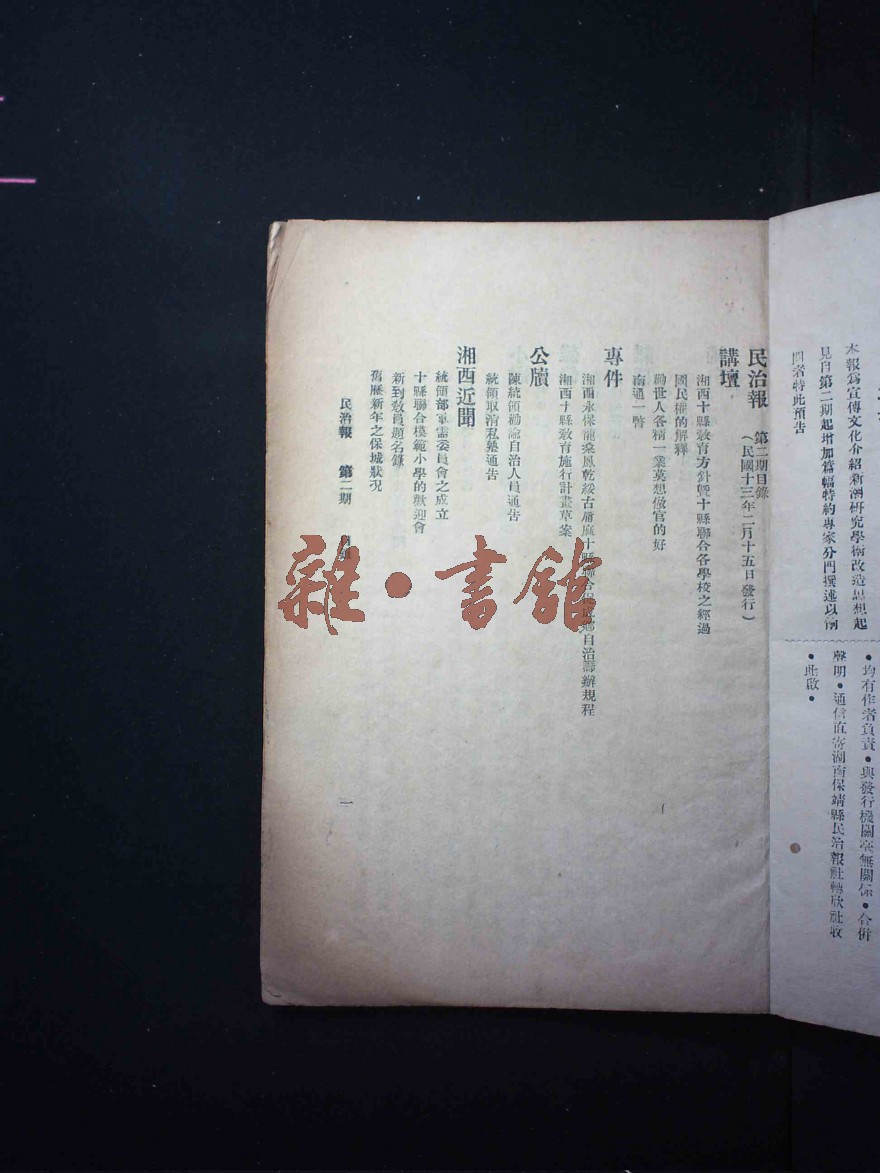 本報爲宣傳文化介紹新潮研究學術改造思想起
見自第二期起增加篇幅特約專家分門撰述以餉
閱者特此預告
•均有作者負責•與發行機關毫無關係•合併
聲明•通信直寄湖南保靖縣民治報社轉欣社收
•此啟•
民治報 第二期目錄
(民國十三年二月十五日發行)
講壇
湘西十縣教育方針暨十縣聯合各學校之經過
國民權的解釋
勸世人各精一業莫想做官的好
南通一瞥
專件
湘西永保龍桑鳳乾綏古庸瀘十縣聯合鄉自治籌辦規程
湘西十縣教育施行計畫草案
公牘
陳統領勸諭自治人員通告
統領取消私塾通告
湘西近聞
統領部軍需委員會之成立
十縣聯合模範小學的歡迎會
新到教員題名錄
舊歷新年之保城狀况
民治報 第二期
一
雜•書館